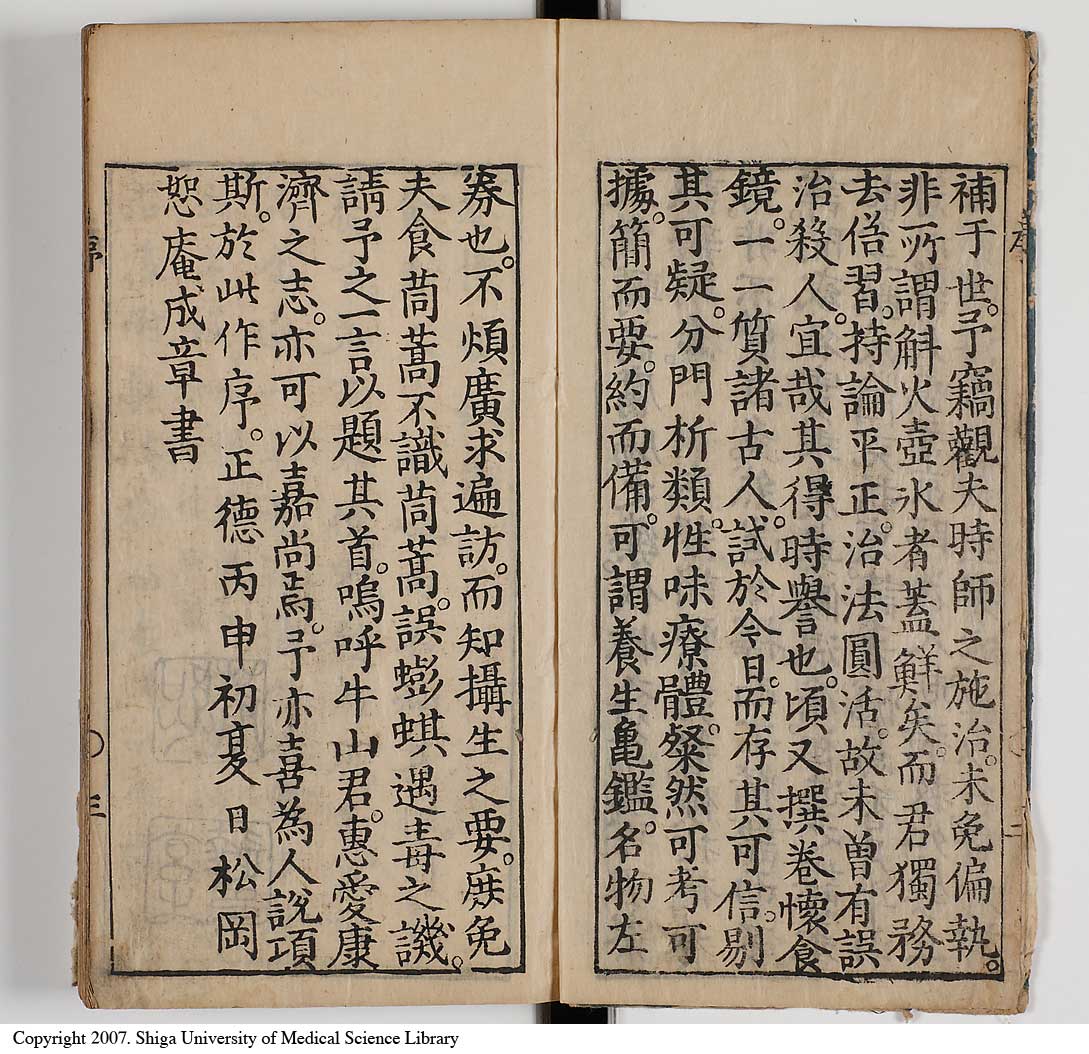 補于世。予竊觀夫時師之施治。未免偏執。
非所謂斛火壺氷者蓋鮮矣。而君獨務
去俗習。持論平正。治法圓活。故未曽有誤
治殺人。宜哉其得時譽也。頃又撰巻懷食
鏡。一一質諸古人。試於今日。而存其可信。剔
其可疑。分門析類。性味療體。粲然可考可
據。簡而要。約而備。可謂養生亀鑑。名物左
券也。不煩廣求遍訪。而知攝生之要。庶免
夫食茼蒿不識茼蒿。誤蟛蜞遇毒之譏。
請予之一言以題其首。嗚呼牛山君。惠愛康
濟之志。亦可以嘉尚焉。予亦喜為人說項
斯。於此作序。正德丙申初夏日松岡
恕庵成章書
序
〇三
Copyright 2007. Shiga University of Medical Science Library